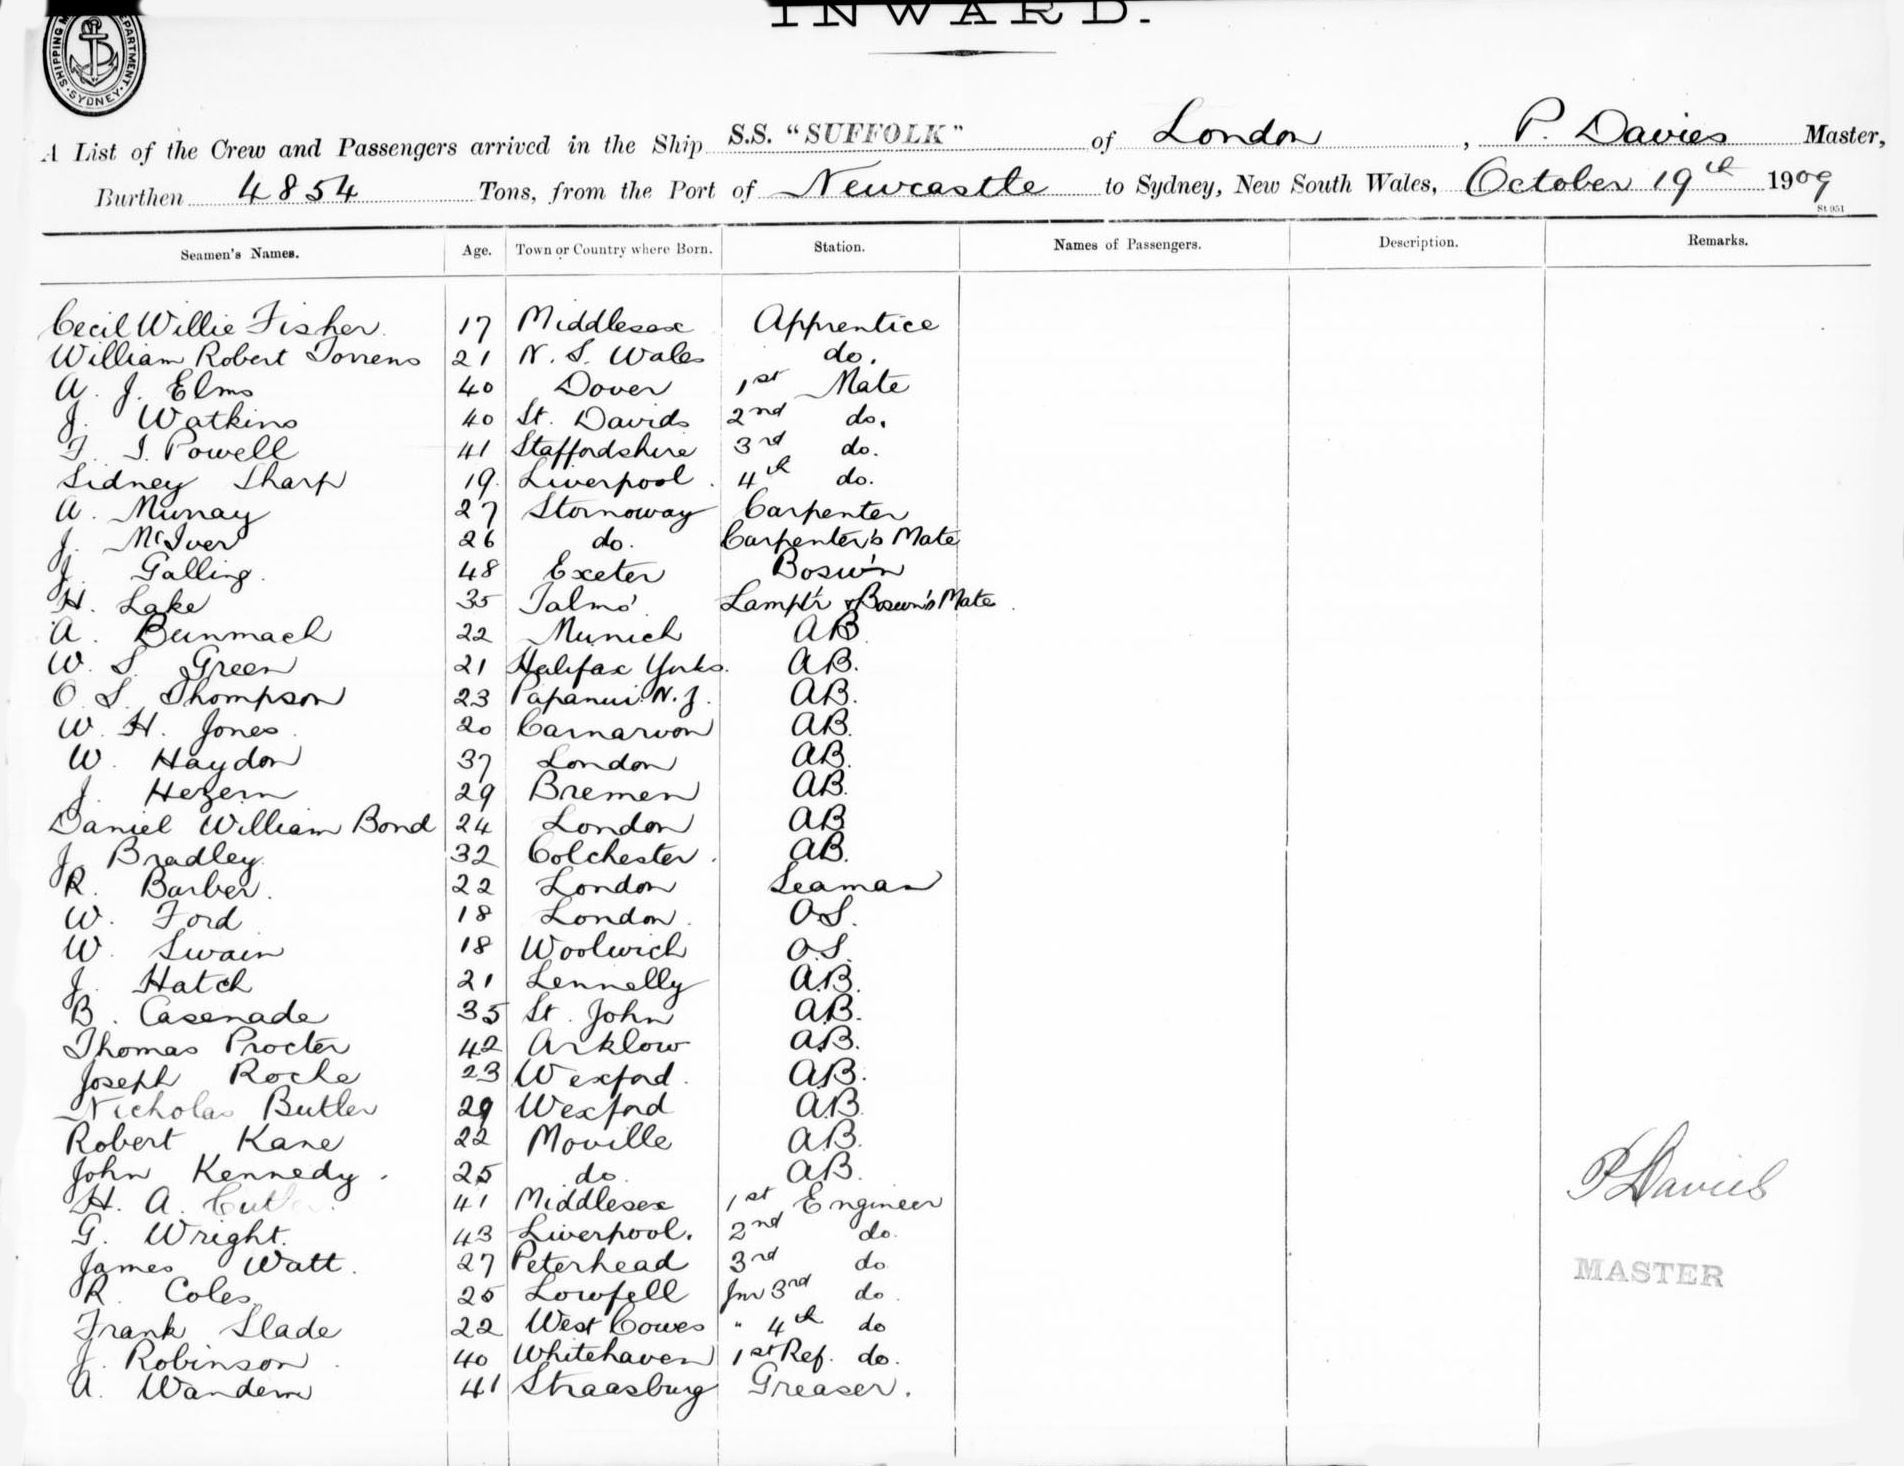 INWARD.
SHIPPING DEPARTMENT. SYDNEY
A List of the Crew and Passengers arrived in the Ship S.S. "SUFFOLK" of London, P. Davies Master,
Burthen 4854 Tons, from the Port of Newcastle to Sydney, New South Wales, October 19th 1909
St 951
Seamen's Names. Age. Town or Country where Born. Station. Names of Passengers. Description. Remarks.
Cecil Willie Fisher 17 Middlesex Apprentice
William Robert Torrens 21 N. S. Wales do.
A. J. Elms 40 Dover 1st Mate
J. Watkins 40 St. Davids 2nd do.
F. I. Powell 41 Staffordshire 3rd do.
Sidney Sharp 19 Liverpool. 4th do.
A. Murray 27 Stornoway Carpenter
J. McIver 26 do. Carpenter's Mate
J. Galling. 48 Exeter Bosw'n
H. Lake 35 Talmo' Lampt'r & Boswn's Mate.
A. Bunmach 22 Munich AB.
W. S. Green 21 Halifax Yorks. AB.
O. S. Thompson 23 Papanui. N.Z. AB.
W. H. Jones. 20 Carnarvon AB.
W. Haydon 37 London AB.
J. Hezern 29 Bremen AB.
Daniel William Bond 24 London AB
J. Bradley. 32 Colchester. AB.
R. Barber. 22 London Seaman
W. Ford 18 London. O.S.
W. Swain 18 Woolwich O.S.
J. Hatch 21 Lennelly A.B.
B. Casenade 35 St. John A.B.
Thomas Procter 42 Arklow A.B.
Joseph Roche 23 Wexford. A.B.
Nicholas Butler 29 Wexford A.B.
Robert Kane 22 Moville A.B.
John Kennedy. 25 do AB.
H. A. Cutler. 41 Middlesex 1st Engineer
G. Wright. 43 Liverpool. 2nd do.
James Watt. 27 Peterhead 3rd do
R. Coles 25 Lowfell Jnr 3rd do.
Frank Slade 22 West Cowes " 4th do
J. Robinson. 40 Whitehaven 1st Ref. do.
A. Wandem 41 Straasburg Greaser.
P Davies
MASTER